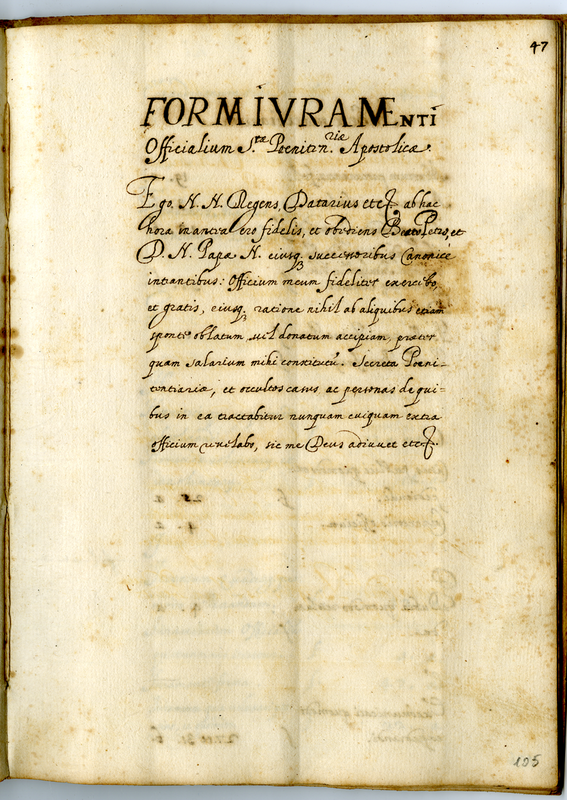 47
FORM IVRAMENTI
Officialium S.tæ Pœnitin.riæ Apostolicæ.
Ego. N. N. Regens, Datarius etc. ab hac
hora in antea ero fidelis, et obediens Beato Petro, et
D. N. Papæ N. eiusq3 successoribus Canonicè
intrantibus: Officium meum fideliter exercebo,
et gratis, eiusq3 ratione nihil ab aliquibus etiam
sponte oblatum vel donatum accipiam, præter
quam salarium mihi constitutũ. Secreta Pœni-
tentiariæ, et occultos casus ac personas de qui-
bus in ea tractabitur nunquam cuiquam extra
officium revelabo, sic me Deus adiuvet etc.
105